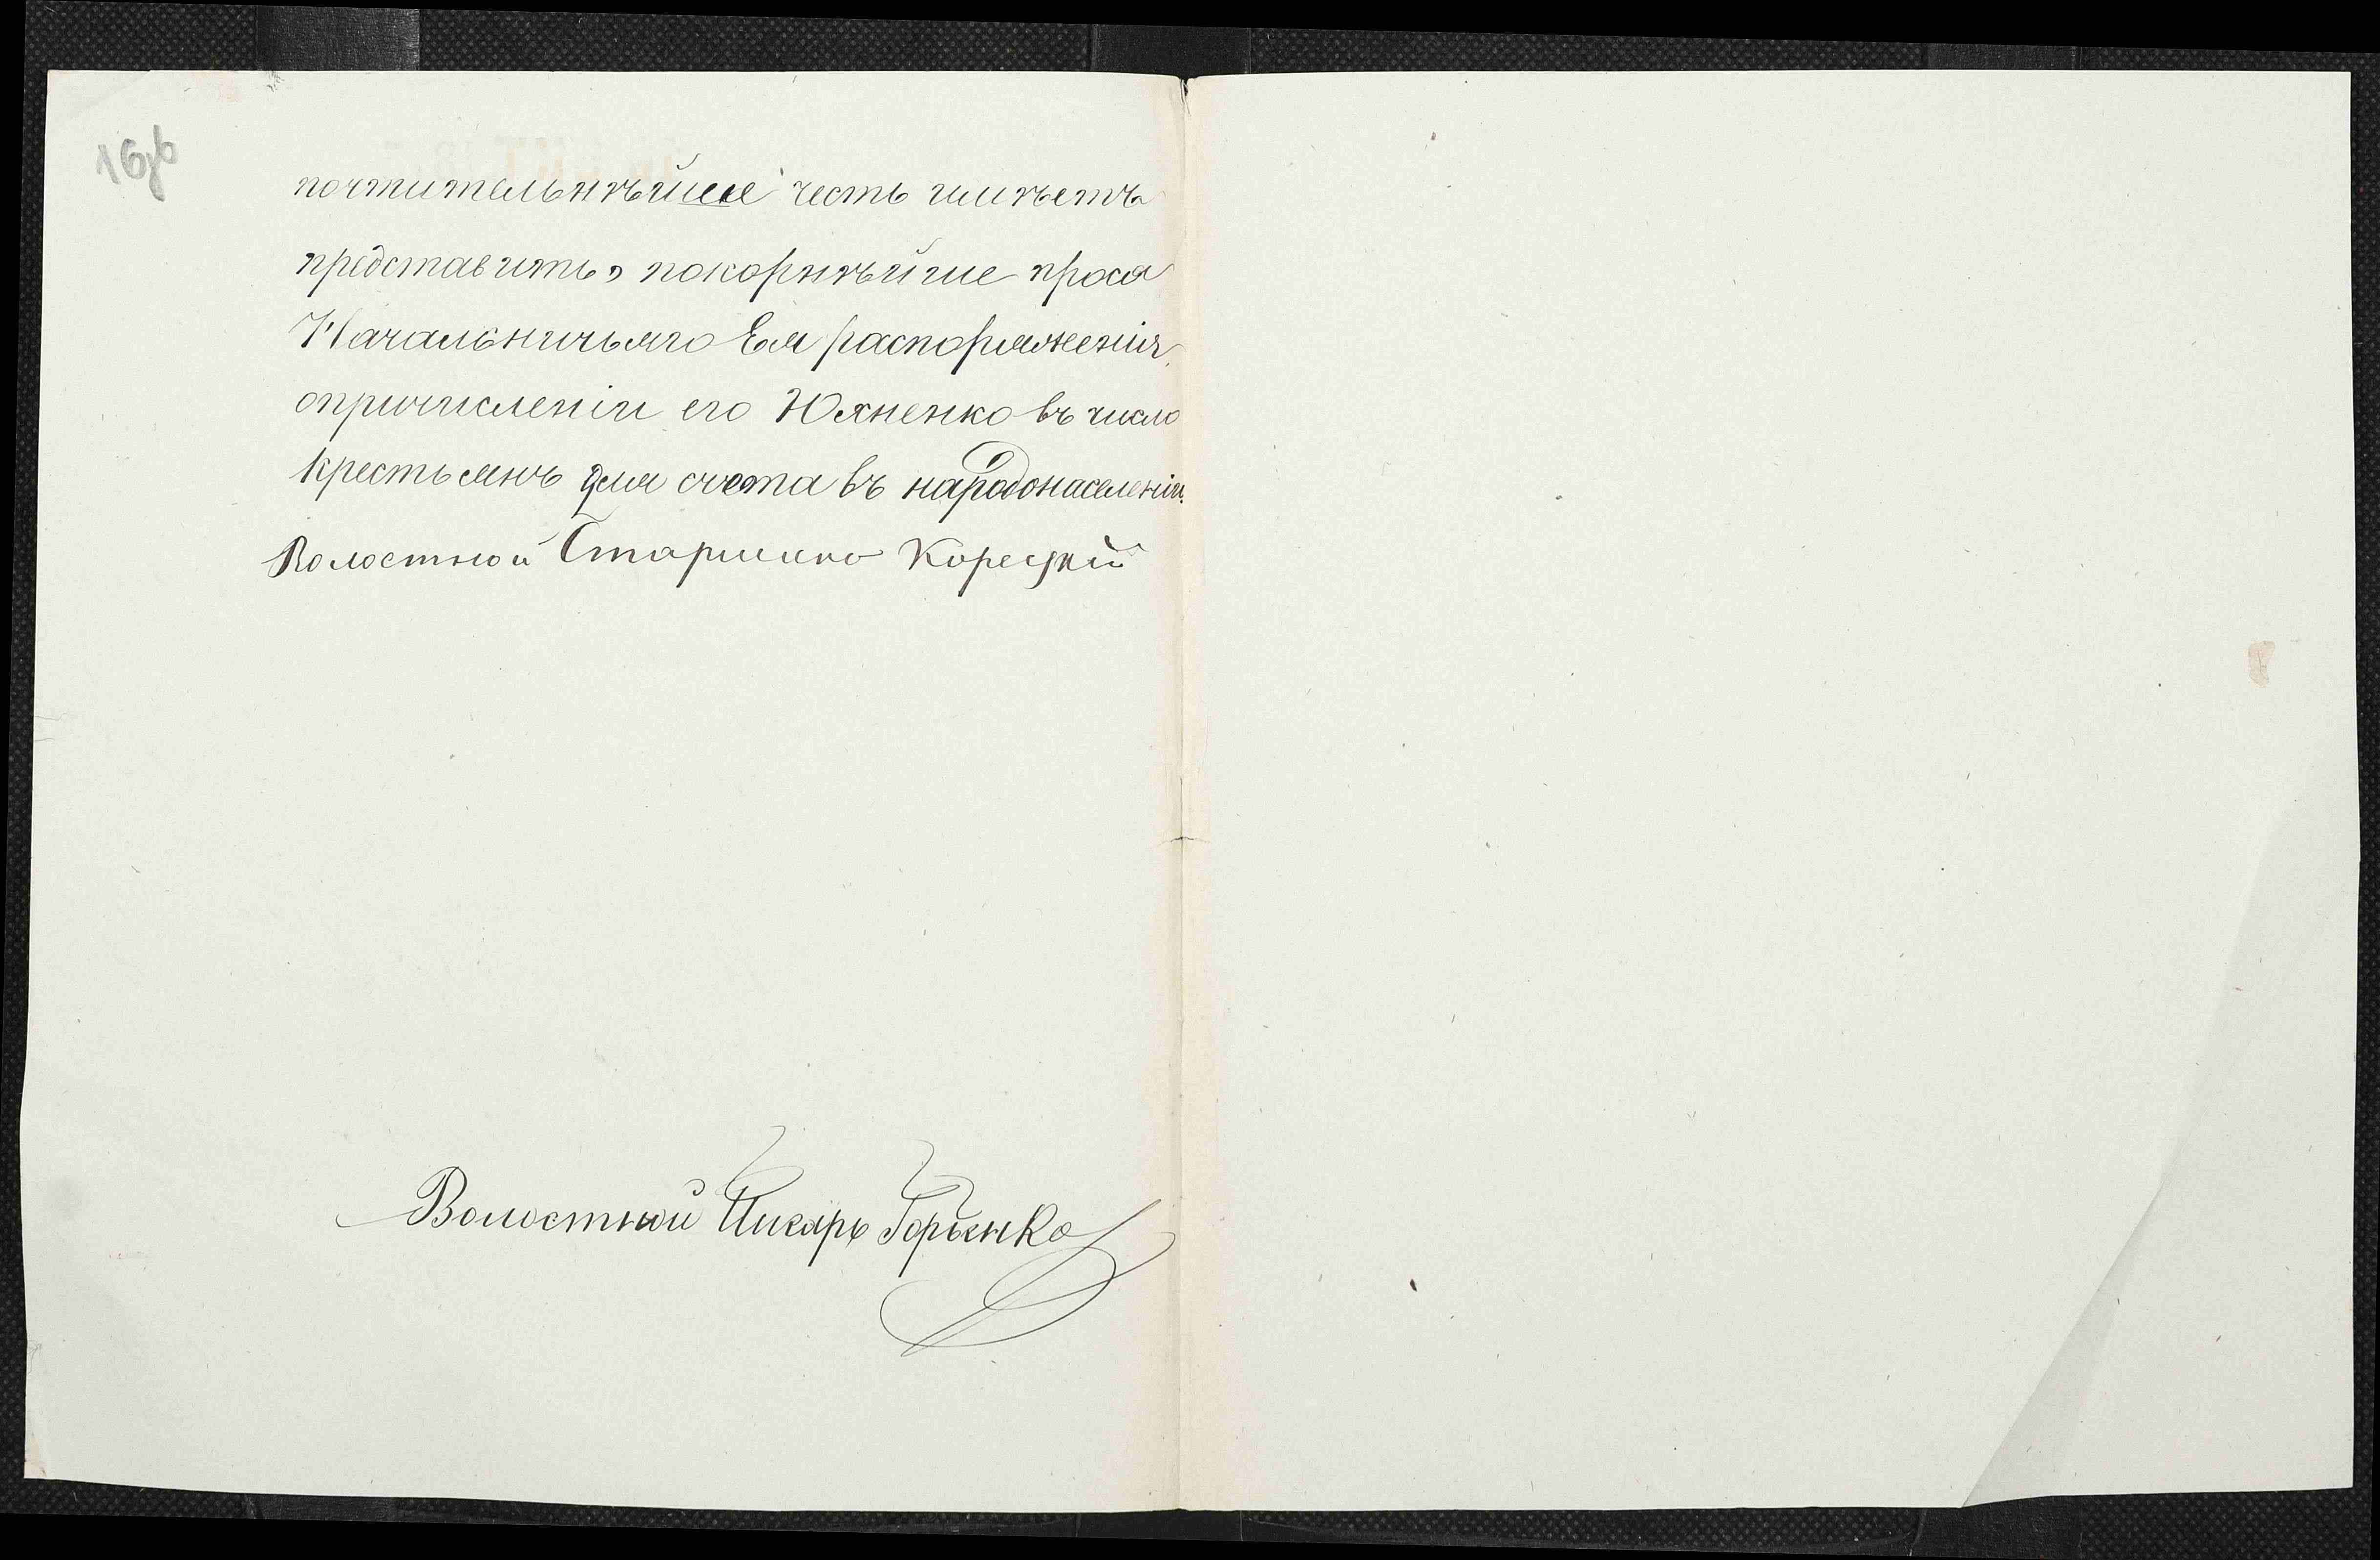 16об
почтительнѣйше честь имѣетъ
представить, покорнѣйше прося
Начальничьяго Ея распоряженія,
опричисленіи его Юхненко въ число
крестьянъ для счета въ народонаселеніи.
Волостной Старшина Корецкій
Волостной Писарь Горбенко